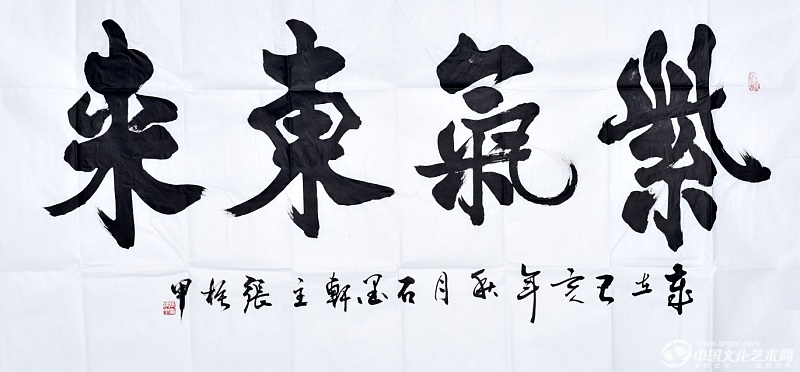 紫氣東來
歲在己亥年秋月石墨軒主張甲
中国文化艺术网